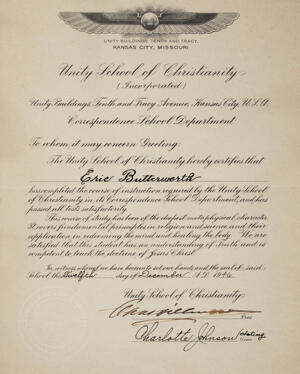 UNITY BUILDINGS, TENTH AND TRACY,
KANSAS CITY, MISSOURI
Unity School of Christianity
(Incorporated)
Unity Buildings, Tenth and Tracy Avenue, Kansas City, U.S.A.
Correspondence School Department
To whom it may concern Greeting:
The Unity School of Christianity hereby certifies that
Eric Butterworth
has completed the course of instruction required by the Unity School
of Christianity in its Correspondence School Department, and has
passed all tests satisfactorily.
This course of study has been of the deepest metaphysical character.
It covers fundamental principles in religion and science and their
application in redeeming the mind and healing the body. We are
satisfied that this student has an understanding of Truth and is
competent to teach the doctrine of Jesus Christ.
In witness whereof we have hereunto set our hands and the seal of said
School this Twelfth day of December A.D. 1946
Unity School of Christianity
Pres.
Charlotte Johnson (Acting)